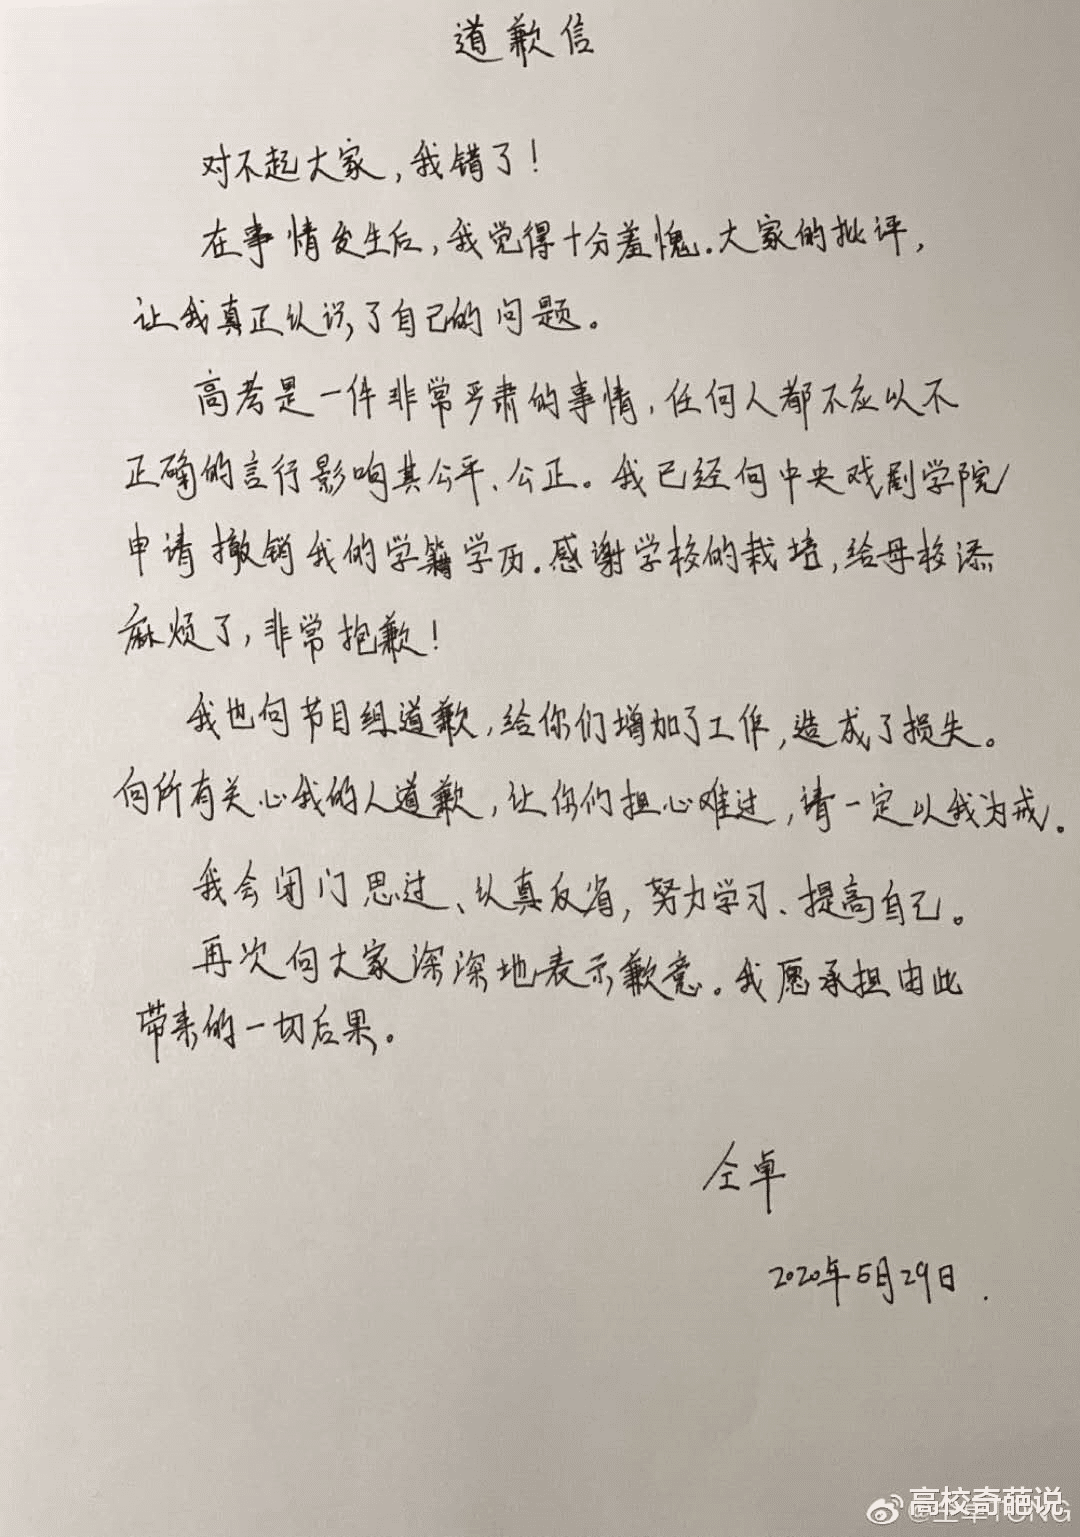 道歉信
对不起大家，我错了！
在事情发生后，我觉得十分羞愧。大家的批评，
让我真正认识了自己的问题。
高考是一件非常严肃的事情，任何人都不应以不
正确的言行影响其公平、公正。我已经向中央戏剧学院
申请撤销我的学籍学历。感谢学校的栽培，给母校添
麻烦了，非常抱歉！
我也向节目组道歉，给你们增加了工作，造成了损失。
向所有关心我的人道歉，让你们担心难过，请一定以我为戒。
我会闭门思过、认真反省，努力学习、提高自己。
再次向大家深深地表示歉意。我愿承担由此
带来的一切后果。
仝卓
2020年5月29日.
高校奇葩说